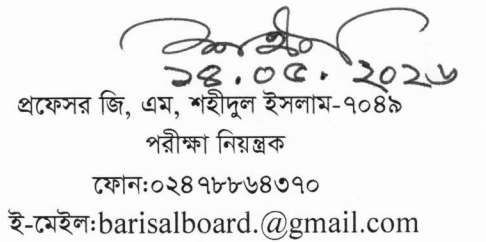 ২৪.০৫.২০২৬
প্রফেসর জি, এম, শহীদুল ইসলাম-৭০৪৯
পরীক্ষা নিয়ন্ত্রক
ফোন:০২৪৭৮৮৬৪৩৭০
ই-মেইল:barisalboard.@gmail.com